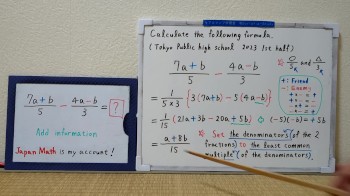 7a+b/5 - 4a-b/3 = ?
Add information
Japan Math is my account!
Calculate the following formula.
(Tokyo Public high school 2023 1st half)
7a+b/5 - 4a-b/3
= 1/5×3 {3(7a+b)-5(4a-b)}
+ : Friend
- : Enemy
= 1/15 (21a+3b-20a+5b)
(-5)(-b)=+5b
= a+8b/15
Set the denominators of the 2
fractions to the least common
multiple of the denominators.